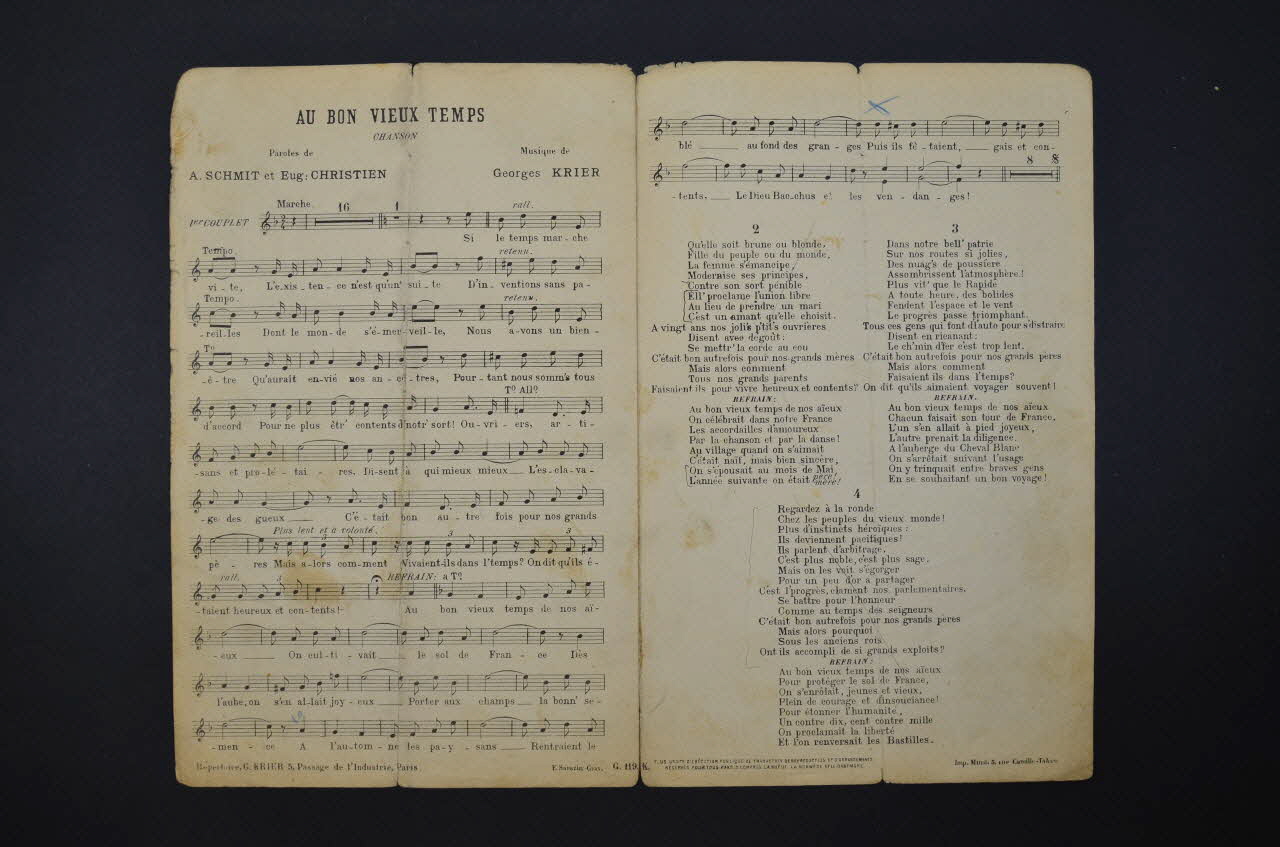 AU BON VIEUX TEMPS
CHANSON
Paroles de
A. SCHMIT et Eug: CHRISTIEN
Musique de
Georges KRIER
Marche.
16
1
rall.
1er COUPLET
Si le temps mar - che
Tempo.
retenu.
vi - te, L'e.xis - ten - ce n'est qu'un' sui - te D'in - ventions sans pa -
Tempo.
retenu.
- reil.les Dont le mon - de s'é - mer - veil - le, Nous a - vons un bien -
To
- ê - tre Qu'aurait en - vié nos an - cê - tres, Pour - tant nous somm's tous
To Allo
d'accord Pour ne plus êtr' contents d'notr' sort! Ou - vri - ers, ar - ti -
- sans et pro - lé - tai - res, Di.sent à qui mieux mieux L'es - cla - va -
- ge des gueux C'é - tait bon au - tre fois pour nos grands
Plus lent et à volonté.
3
3
3
pè - res Mais a - lors com - ment Vivaient-ils dans l'temps? On dit qu'ils é -
rall.
3
REFRAIN: a To
- taient heureux et con - tents! Au bon vieux temps de nos aï -
- eux On cul - ti - vait le sol de Fran - ce Dès
l'aube, on s'en al - lait joy - eux Porter aux champs la bonn' se -
- men - ce A l'au - tom - ne les pay - sans Rentraient le
Répertoire, G. KRIER 5, Passage de l'Industrie, Paris.
G. 119. K.
blé au fond des gran - ges Puis ils fê - taient, gais et con -
8
- tents, Le Dieu Bac - chus et les ven - dan - ges!
2
Qu'elle soit brune ou blonde,
Fille du peuple ou du monde,
La femme s'émancipe,
Modernise ses principes,
Contre son sort pénible
Ell' proclame l'union libre
Au lieu de prendre un mari
C'est un amant qu'elle choisit.
A vingt ans nos jolis p'tit's ouvrières
Disent avec dégoût:
Se mettr' la corde au cou
C'était bon autrefois pour nos grands mères
Mais alors comment
Tous nos grands parents
Faisaient ils pour vivre heureux et contents?
REFRAIN:
Au bon vieux temps de nos aïeux
On célébrait dans notre France
Les accordailles d'amoureux
Par la chanson et par la danse!
Au village quand on s'aimait
C'était naïf, mais bien sincère,
On s'épousait au mois de Mai
L'année suivante on était père!
mère!
3
Dans notre bell' patrie
Sur nos routes si jolies,
Des nuag's de poussière
Assombrissent l'atmosphère!
Plus vit' que le Rapide
A toute heure, des bolides
Fendent l'espace et le vent
Le progrès passe triomphant.
Tous ces gens qui font d'l'auto pour s'distraire
Disent en ricanant:
Le ch'min d'fer c'est trop lent,
C'était bon autrefois pour nos grands pères
Mais alors comment
Faisaient ils dans l'temps?
On dit qu'ils aimaient voyager souvent!
REFRAIN.
Au bon vieux temps de nos aïeux
Chacun faisait son tour de France,
L'un s'en allait à pied joyeux,
L'autre prenait la diligence.
A l'auberge du Cheval Blanc
On s'arrêtait suivant l'usage
On y trinquait entre braves gens
En se souhaitant un bon voyage!
4
Regardez à la ronde
Chez les peuples du vieux monde!
Plus d'instincts héroïques:
Ils deviennent pacifiques!
Ils parlent d'arbitrage,
C'est plus noble, c'est plus sage,
Mais on les voit s'égorger
Pour un peu d'or a partager
C'est l'progrès, clament nos parlementaires.
Se battre pour l'honneur
Comme au temps des seigneurs
C'était bon autrefois pour nos grands pères
Mais alors pourquoi
Sous les anciens rois
Ont ils accompli de si grands exploits?
REFRAIN:
Au bon vieux temps de nos aïeux
Pour protéger le sol de France,
On s'enrôlait, jeunes et vieux,
Plein de courage et d'insouciance!
Pour étonner l'humanité,
Un contre dix, cent contre mille
On proclamait la liberté
Et l'on renversait les Bastilles.